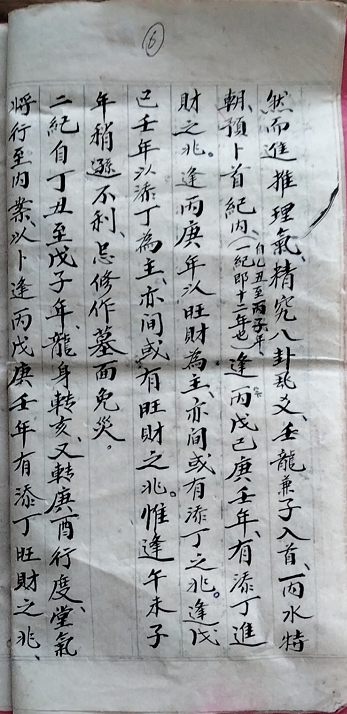 6
然而進推理氣、精究八卦兆爻、壬龍兼子入首、丙水特
朝、預卜首紀内、(一紀即十二年也 自乙丑至丙子年、逢丙戊己庚壬年、有添丁進
財之兆。逢丙庚年以旺財為主、亦间或有添丁之兆。逢戊
己壬年以添丁為主、亦间或有旺財之兆。惟逢午未子
年稍遜不利、忌修作墓面免災。
二紀自丁丑至戊子年、龍身转亥、又转庚酉行度、堂氣
将行至丙業、以卜逢丙戊庚壬年有添丁旺財之兆、